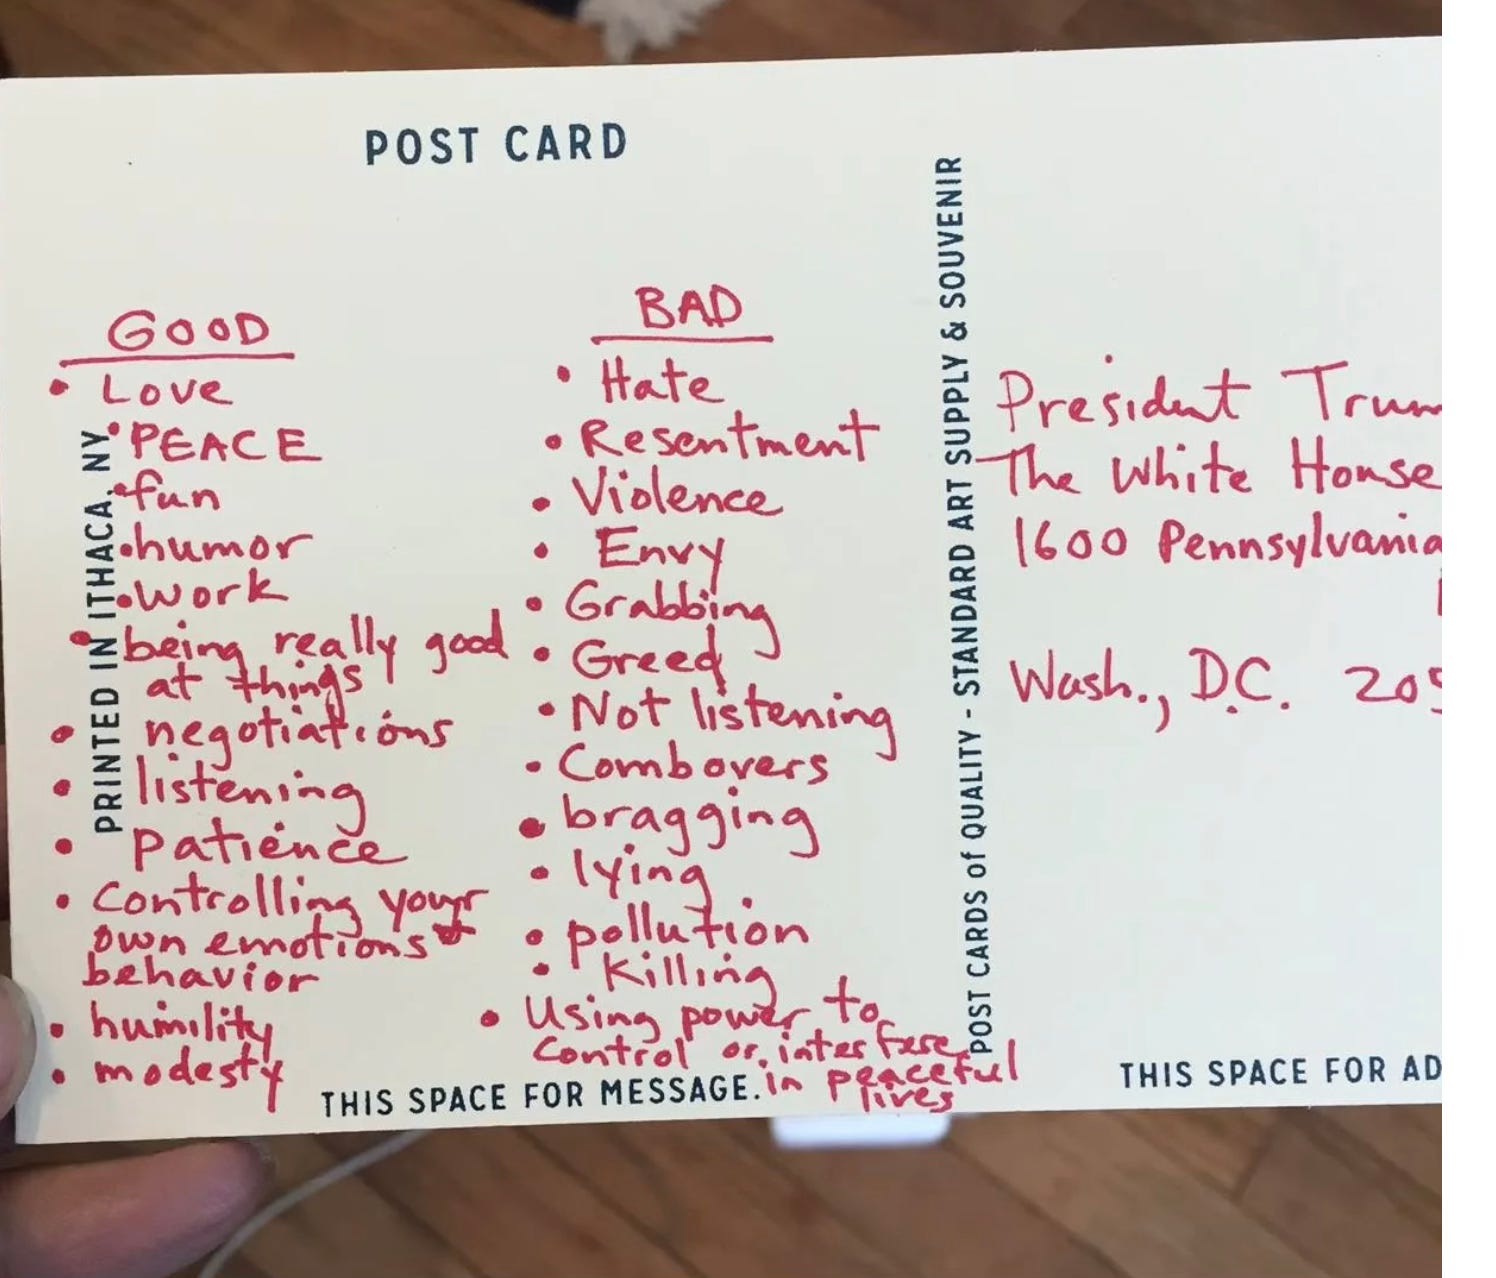 POST CARD
GOOD
• Love
• PEACE
• fun
• humor
• work
• being really good
at things
• negotiations
• listening
• patience
• Controlling your
own emotions +
behavior
• humility
• modesty
BAD
• Hate
• Resentment
• Violence
• Envy
• Grabbing
• Greed
• Not listening
• Combovers
• bragging
• lying
• pollution
• Killing
• Using power to
control or interfere
in peaceful
lives
PRINTED IN ITHACA, NY
THIS SPACE FOR MESSAGE.
POST CARDS of QUALITY - STANDARD ART SUPPLY & SOUVENIR
President Trum
The White House
1600 Pennsylvania
Wash., D.C. 205
THIS SPACE FOR AD